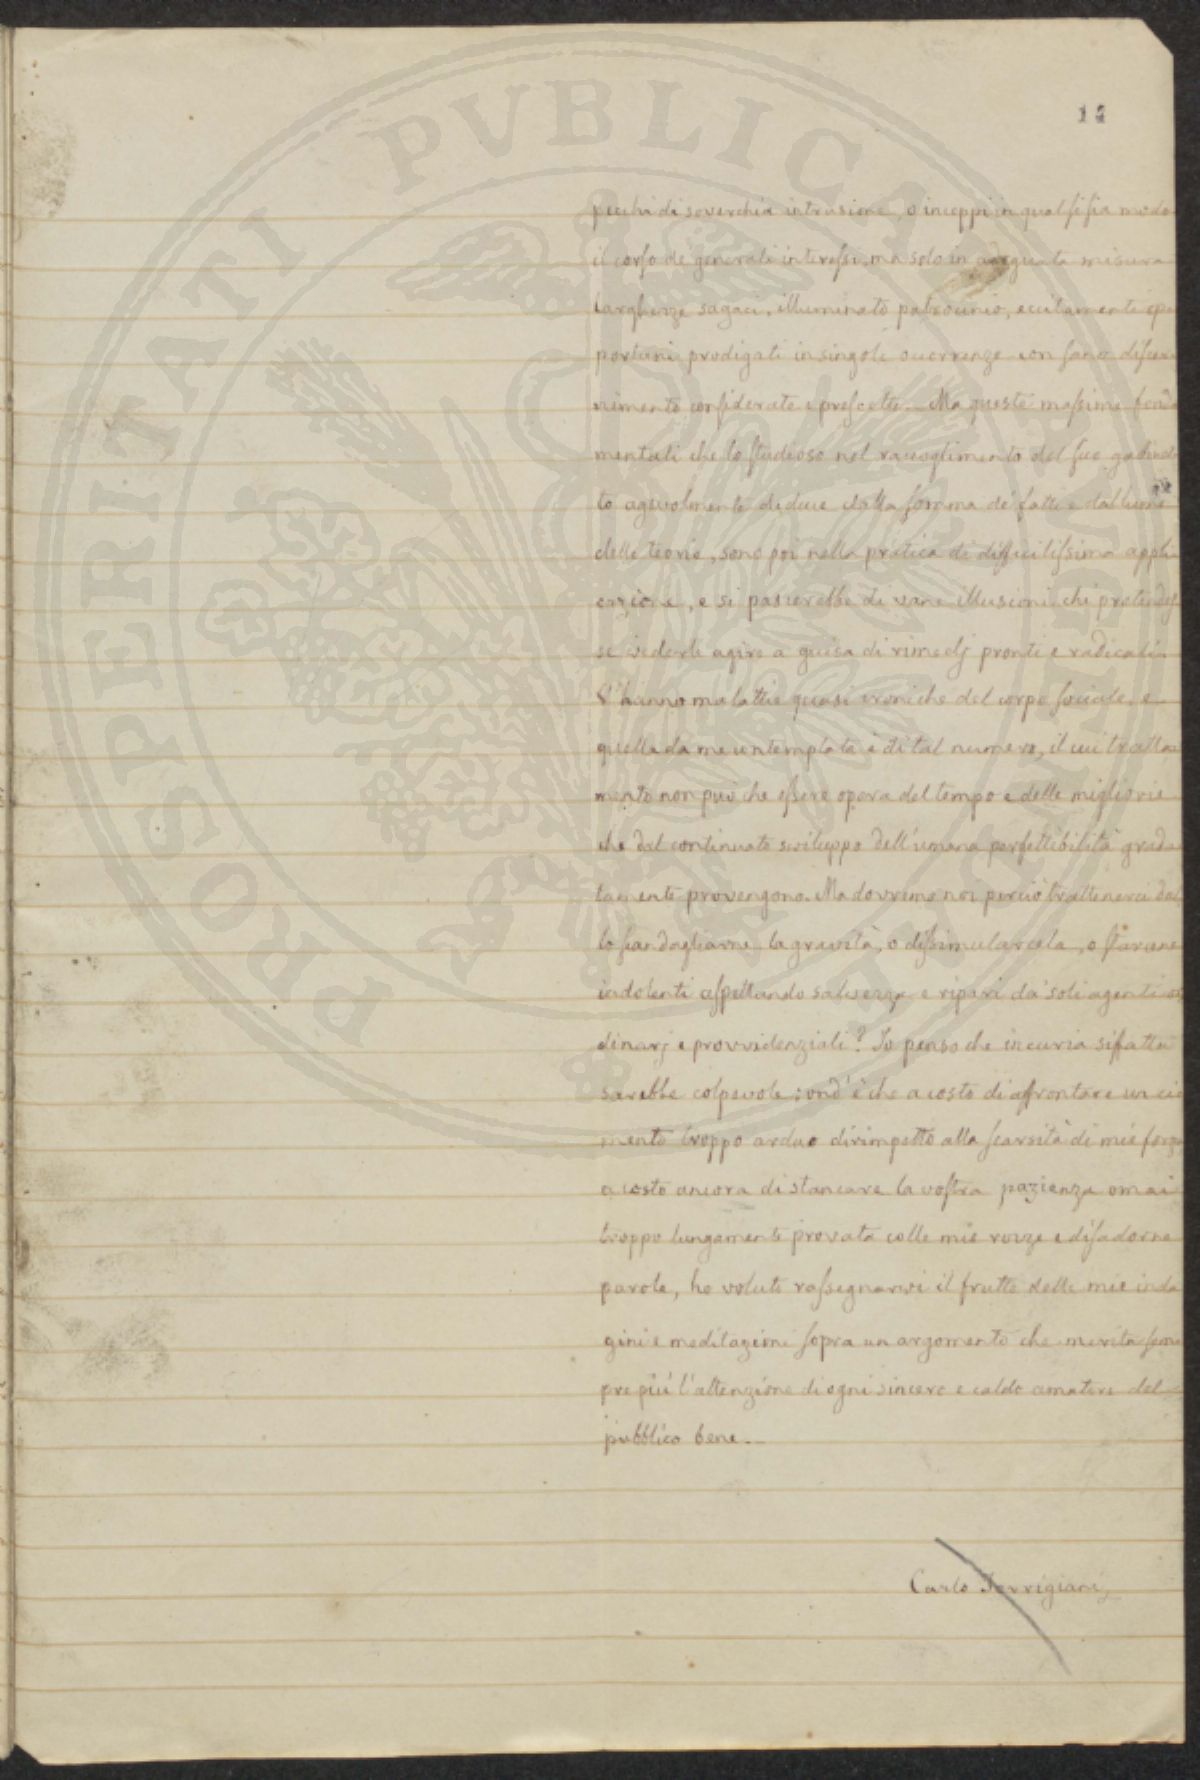 14
pecchi di soverchia intrusione, o inceppi in qualsisia modo
il corso de' generali interessi, ma solo in adeguata misura
larghezze sagaci, illuminato patrocinio, eccitamenti op-
portuni prodigati in singole occorrenze con sano discer-
nimento considerate e prescelte. Ma queste massime fonda
mentali che lo studioso nel raccoglimento del suo gabinet
to agevolmente deduce dalla somma de' fatti e dal lume
delle teorie, sono poi nella pratica di difficilissima appli-
cazione, e si pascerebbe di vane illusioni chi pretendes
se vederle agire a guisa di rimedj pronti e radicali.
V'hanno malattie quasi croniche del corpo sociale, e
quella da me contemplata è di tal numero, il cui tratta-
mento non può che essere opera del tempo e delle migliorie
che dal continuato sviluppo dell'umana perfettibilità grada
tamente provengono. Ma dovremo noi perciò trattenerci dal
lo scandagliarne la gravità, o dissimularcela, o starcene
indolenti aspettando salvezza e ripari da' soli agenti or
dinarj e provvidenziali? Io penso che incuria sifatta
sarebbe colpevole; ond'è che a costo di affrontare un ci
mento troppo arduo dirimpetto alla scarsità di mie forze
a costo ancora di stancare la vostra pazienza omai
troppo lungamente provata colle mie rozze e disadorne
parole, ho voluto rassegnarvi il frutto delle mie inda
gini e meditazioni sopra un argomento che merita sem
pre più l'attenzione di ogni sincero e caldo amatore del
pubblico bene.
Carlo Torrigiani
PROSPERITATI PVBLICAE